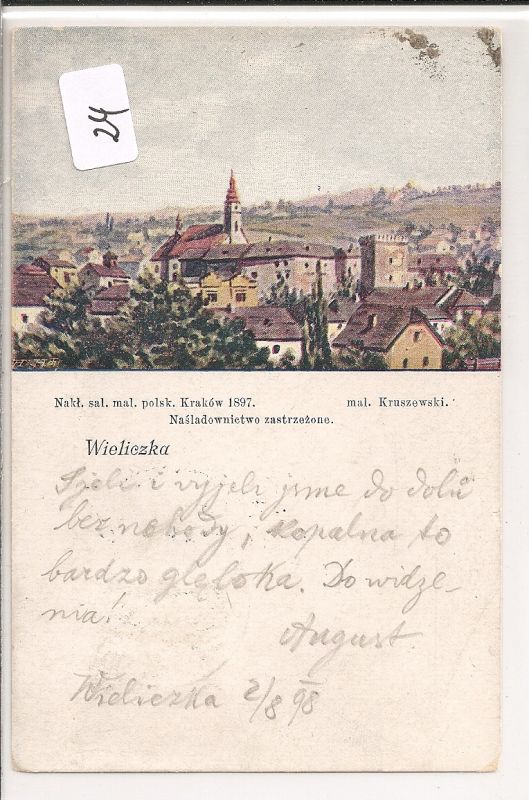 24
Nakł. sal. mal. polsk. Kraków 1897.
mal. Kruszewski.
Naśladownictwo zastrzeżone.
Wieliczka
Sjeli i vyjeli jsme do dolů
bez nehody, kopalna to
bardzo głęboka. Do widze-
nia!
August.
Wieliczka 2/8 98